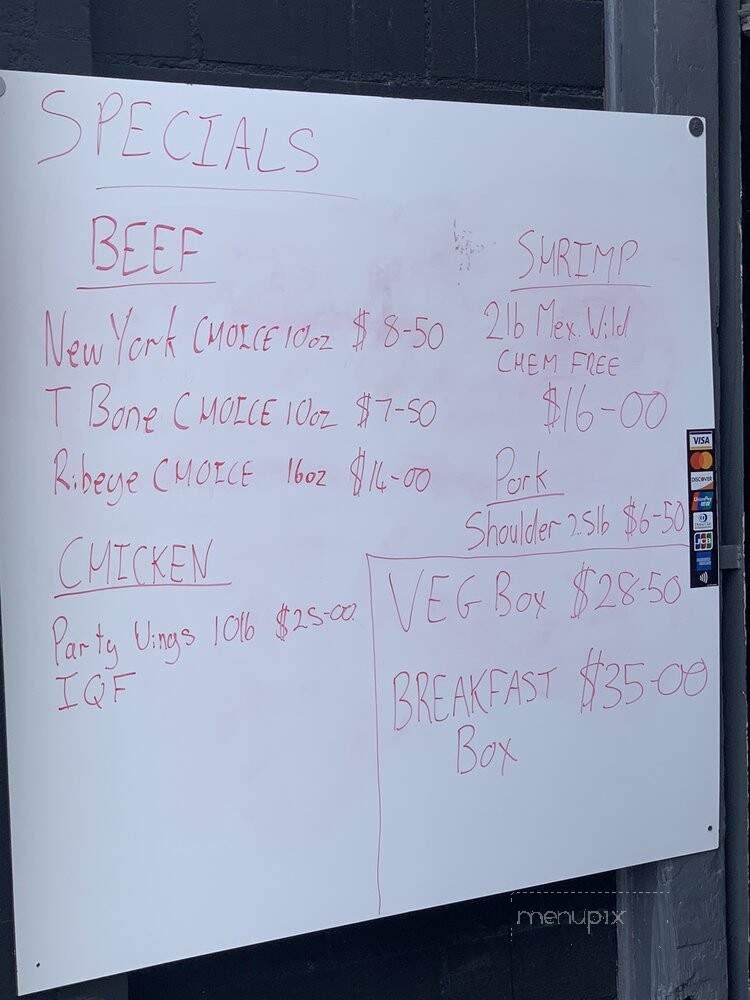 SPECIALS
BEEF
New York CHOICE 10oz $8-50
T Bone CHOICE 10oz $7-50
Ribeye CHOICE 16oz $14-00
CHICKEN
Party Wings 10lb $25-00
IQF
SHRIMP
2lb Mex. Wild
CHEM FREE
$16-00
Pork
Shoulder 2.5lb $6-50
VEG Box $28-50
BREAKFAST $35-00
Box
VISA
DISCOVER
UnionPay
JCB
menupix